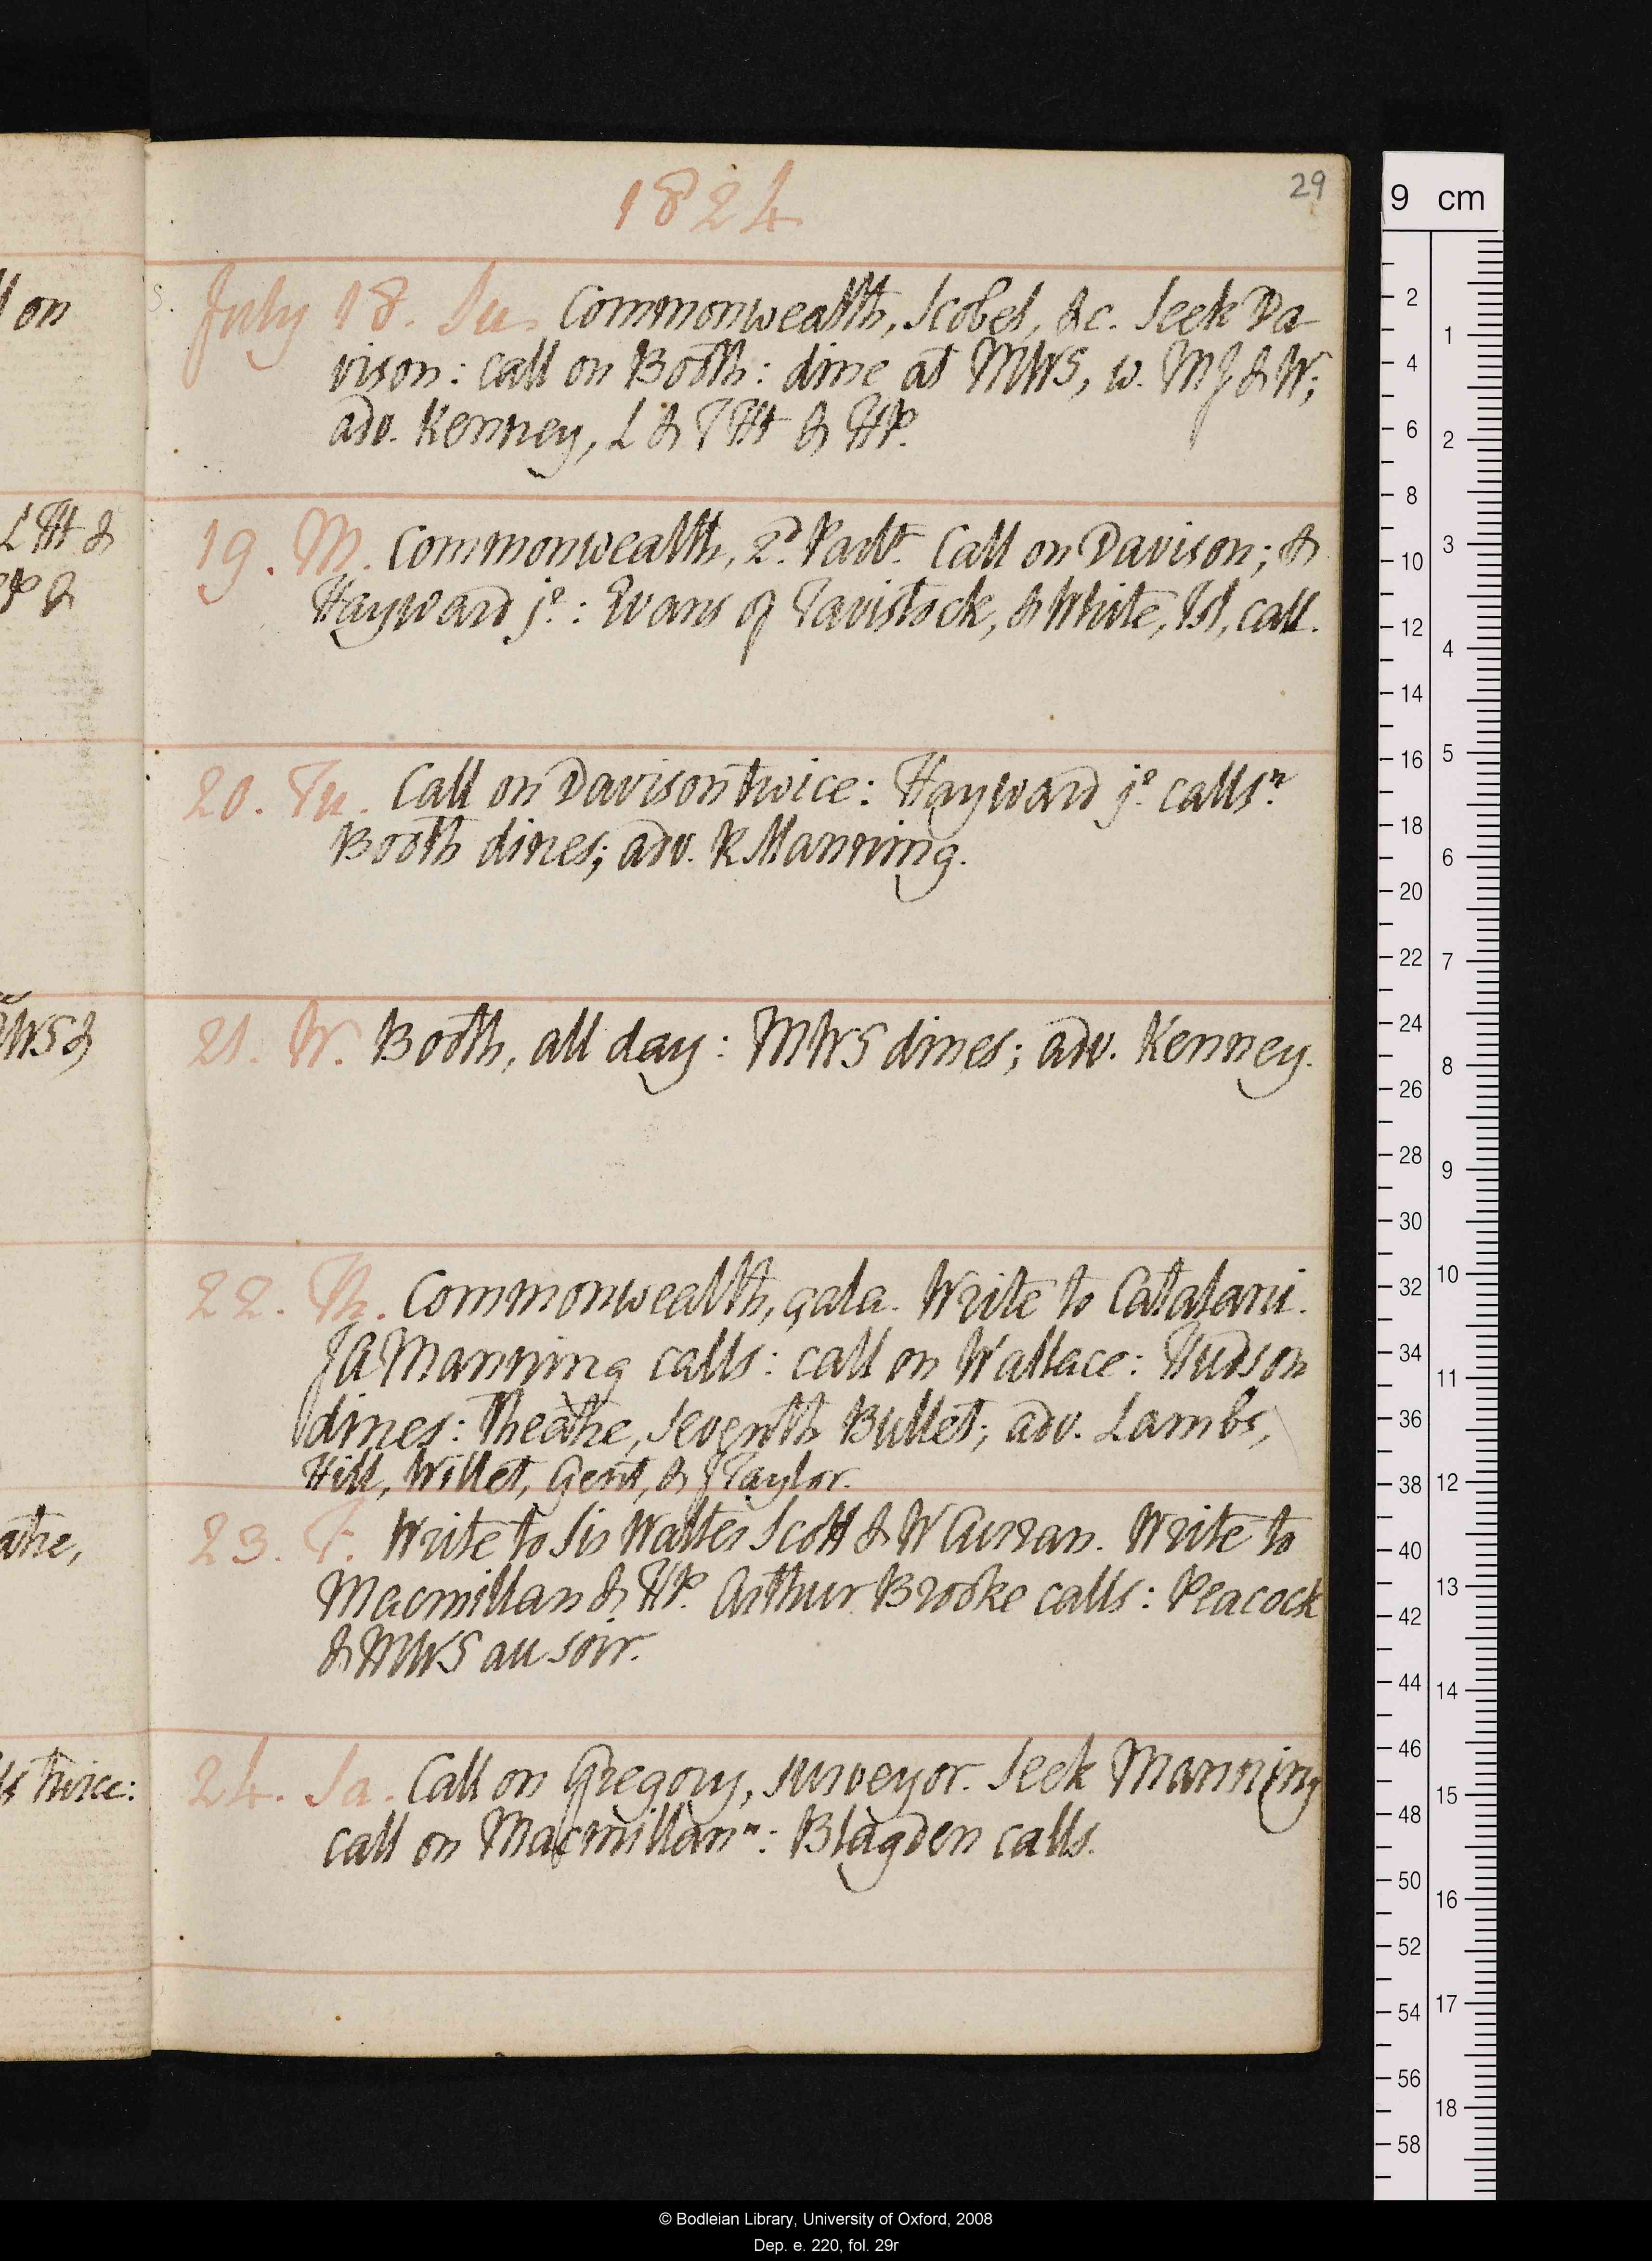 1824
29
July 18. Su. Commonwealth, Scobel, &c. Seek Da-
vison: call on Booth: dine at MWS, w. MJ & W;
adv. Kenney, L & THt & HP.
19. M. Commonwealth, 2d. Part. Call on Davison; &
Hayward jo.: Evans of Tavistock, & White, Isl, call.
20. Tu. Call on Davison twice: Hayward jo. calls n.
Booth dines; adv. R Manning.
21. W. Booth, all day: MWS dines; adv. Kenney.
22. Th. Commonwealth, gala. Write to Catalani.
JA Manning calls: call on Wallace: Hudson
dines: Theatre, Seventh Bullet; adv. Lambs,
Hill, Willet, Gent, & J Taylor.
23. F. Write to Sir Walter Scott & W Curran. Write to
Macmillan & HP. Arthur Brooke calls: Peacock
& MWS au soir.
24. Sa. Call on Gregory, surveyor. Seek Manning
call on Macmillan n: Blagden calls.
l on
LHt &
P &
MWS &
atre,
ls twice:
9 cm
2
4
6
8
10
12
14
16
18
20
22
24
26
28
30
32
34
36
38
40
42
44
46
48
50
52
54
56
58
1
2
3
4
5
6
7
8
9
10
11
12
13
14
15
16
17
18
© Bodleian Library, University of Oxford, 2008
Dep. e. 220, fol. 29r